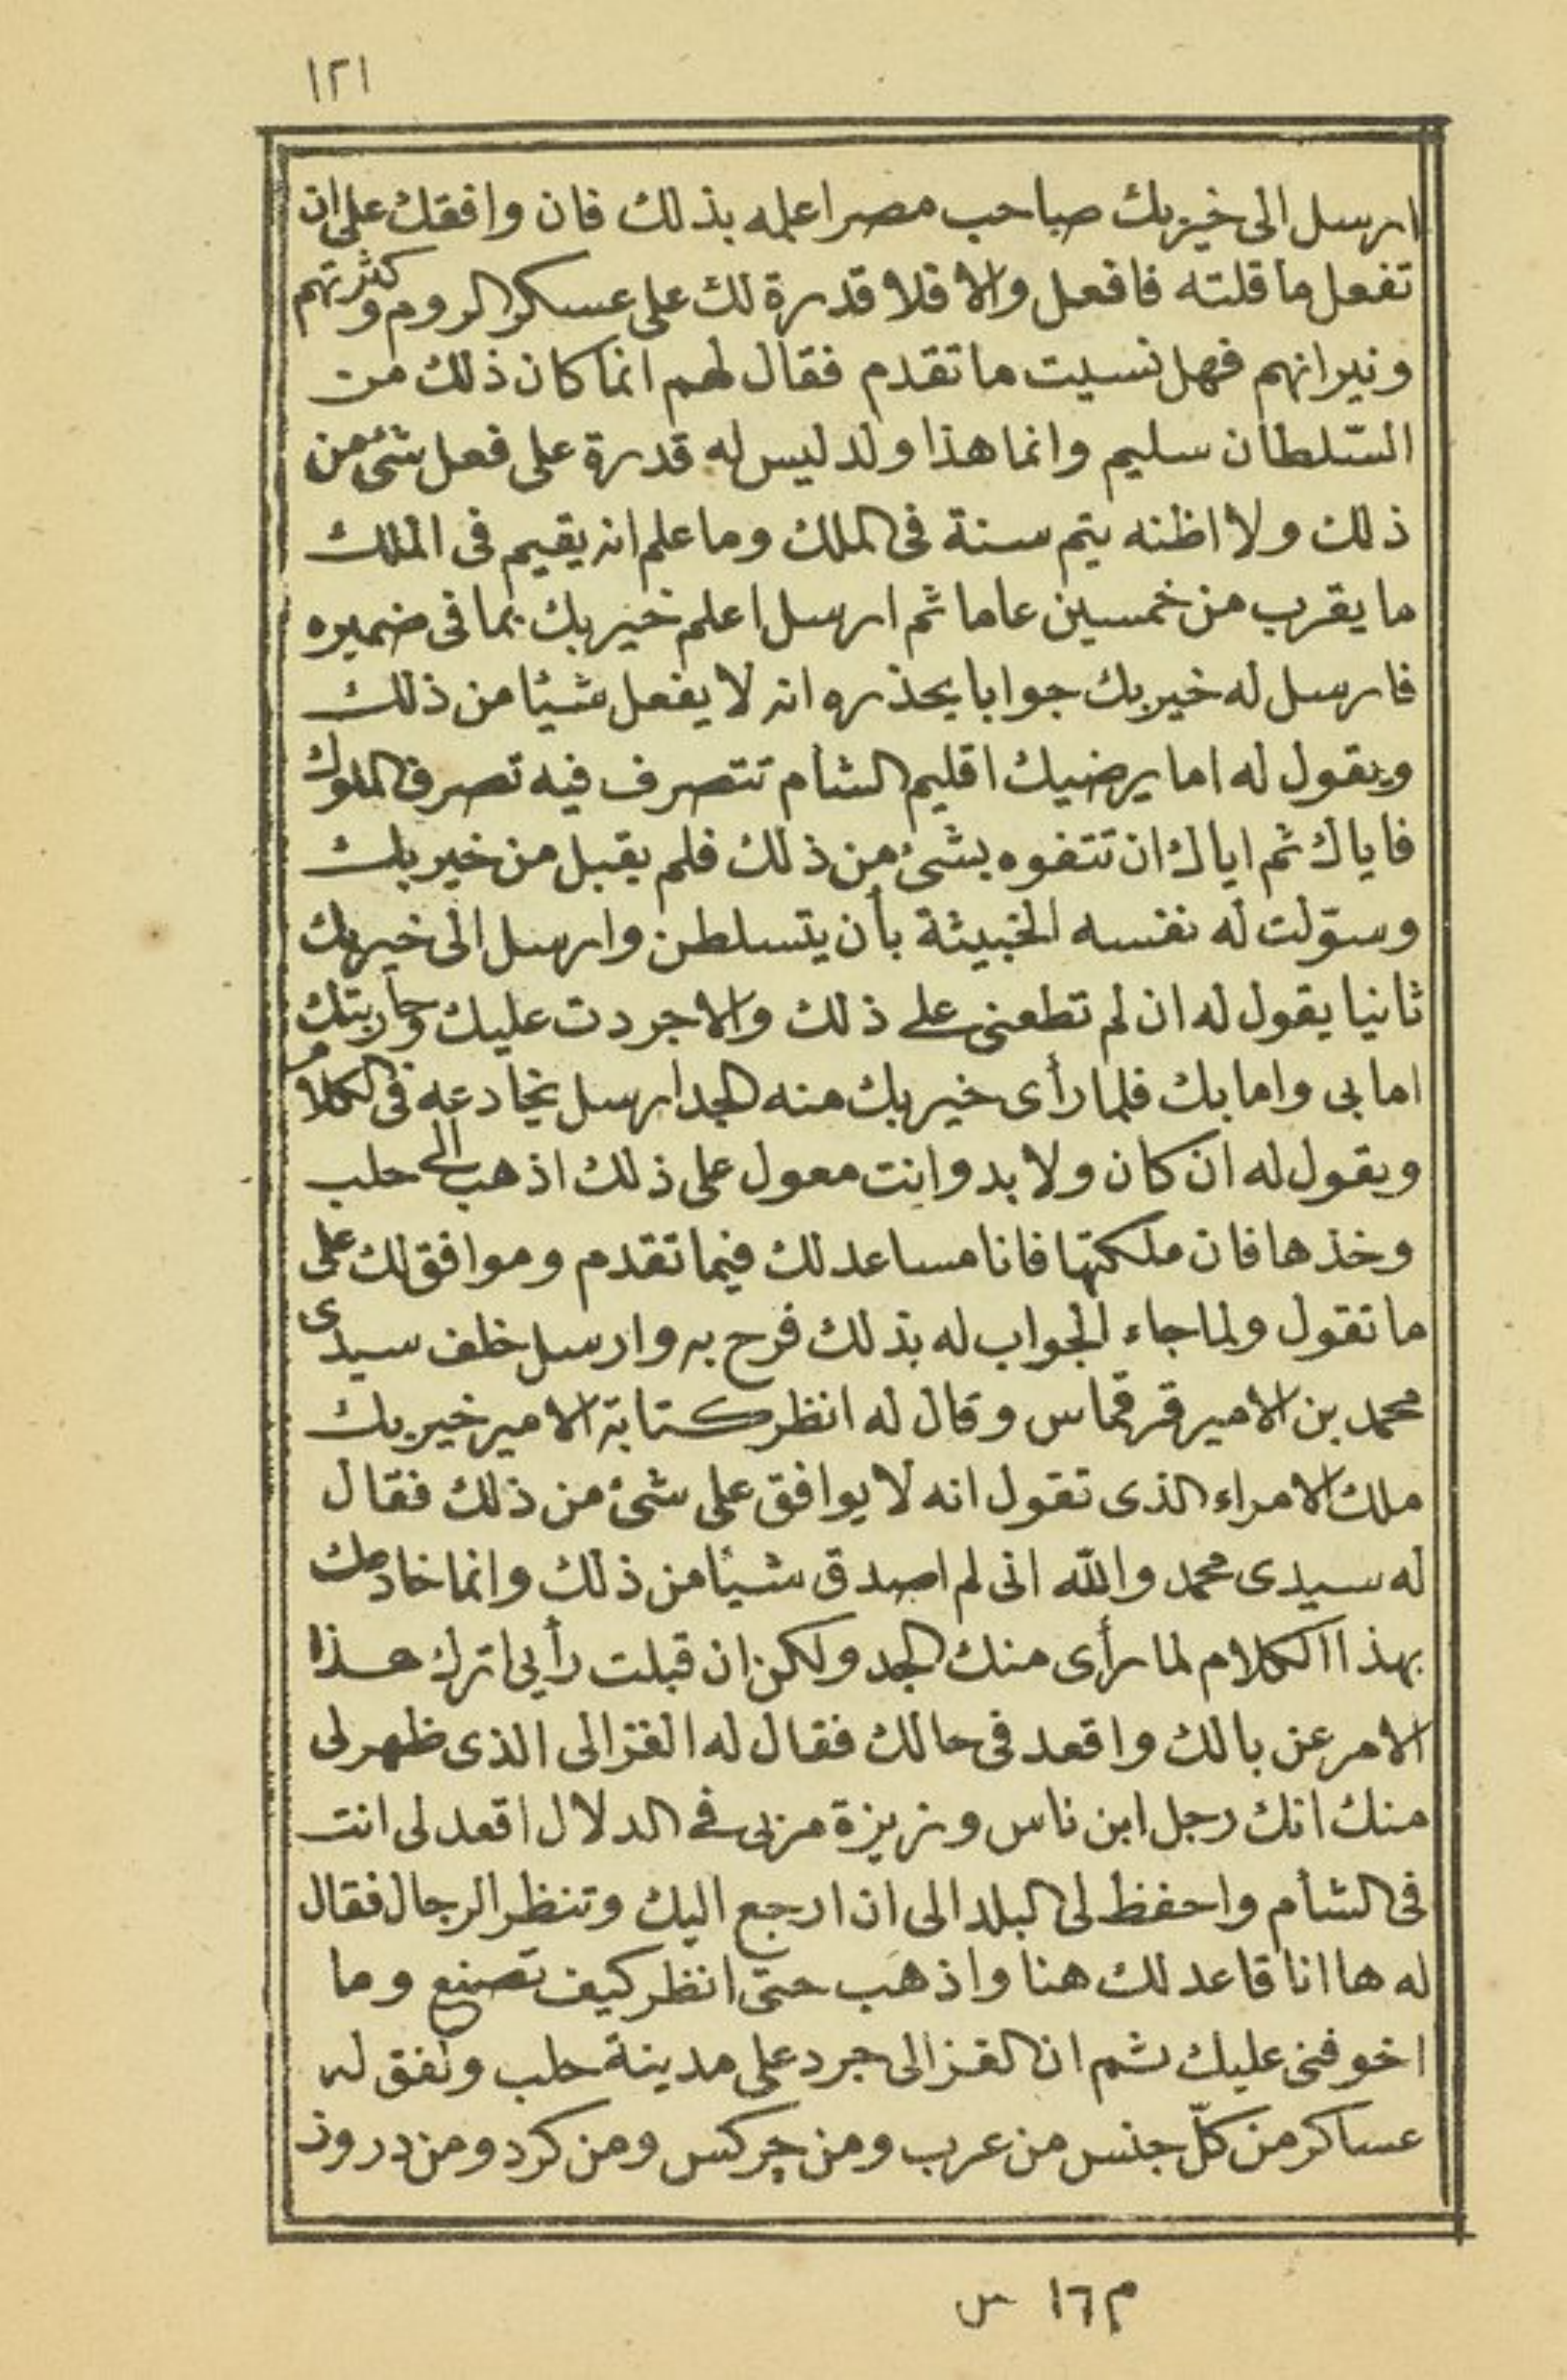 ١٢١
ارسل الى خيربك صاحب مصر اعلمه بذلك فان وافقك على ان
تفعل ما قلته فافعل والا فلا قدرة لك على عسكر الروم وكثرتهم
ونيرانهم فهل نسيت ما تقدم فقال لهم انما كان ذلك من
السّلطان سليم وانما هذا ولد ليس له قدرة على فعل شئ من
ذلك ولا اظنه يتم سنة فى الملك وما علم انه يقيم فى الملك
ما يقرب من خمسين عاما ثم ارسل اعلم خيربك بما فى ضميره
فارسل له خيربك جوابا يحذره انه لا يفعل شيئا من ذلك
ويقول له اما يرضيك اقليم الشام تتصرف فيه تصرف الملوك
فاياك ثم اياك ان تتفوه بشئ من ذلك فلم يقبل من خيربك
وسوّلت له نفسه الخبيثة بأن يتسلطن وارسل الى خيربك
ثانيا يقول له ان لم تطعنى على ذلك والا جردت عليك وحاربتك
اما بى واما بك فلما رأى خيربك منه الجد ارسل يخادعه فى الكلام
ويقول له ان كان ولا بد وانت معول على ذلك اذهب الى حلب
وخذها فان ملكتها فانا مساعد لك فيما تقدم وموافق لك على
ما تقول ولما جاء الجواب له بذلك فرح به وارسل خلف سيدى
محمد بن الامير قرقماس وقال له انظر كتابة الامير خيربك
ملك الامراء الذى تقول انه لا يوافق على شئ من ذلك فقال
له سيدى محمد والله انى لم اصدق شيئا من ذلك وانما خادعك
بهذا الكلام لما رأى منك الجد ولكن ان قبلت رأيى اترك هذا
الامر عن بالك واقعد فى حالك فقال له الغزالى الذى ظهر لى
منك انك رجل ابن ناس وزيزة مربى فى الدلال اقعد لى انت
فى الشأم واحفظ لى البلد الى ان ارجع اليك وتنظر الرجال فقال
له ها انا قاعد لك هنا واذهب حتى انظر كيف تصنع وما
اخوفنى عليك ثم ان الغزالى جرد على مدينة حلب ونفق له
عساكر من كلّ جنس من عرب ومن چركس ومن كرد ومن دروز
م ١٦ س